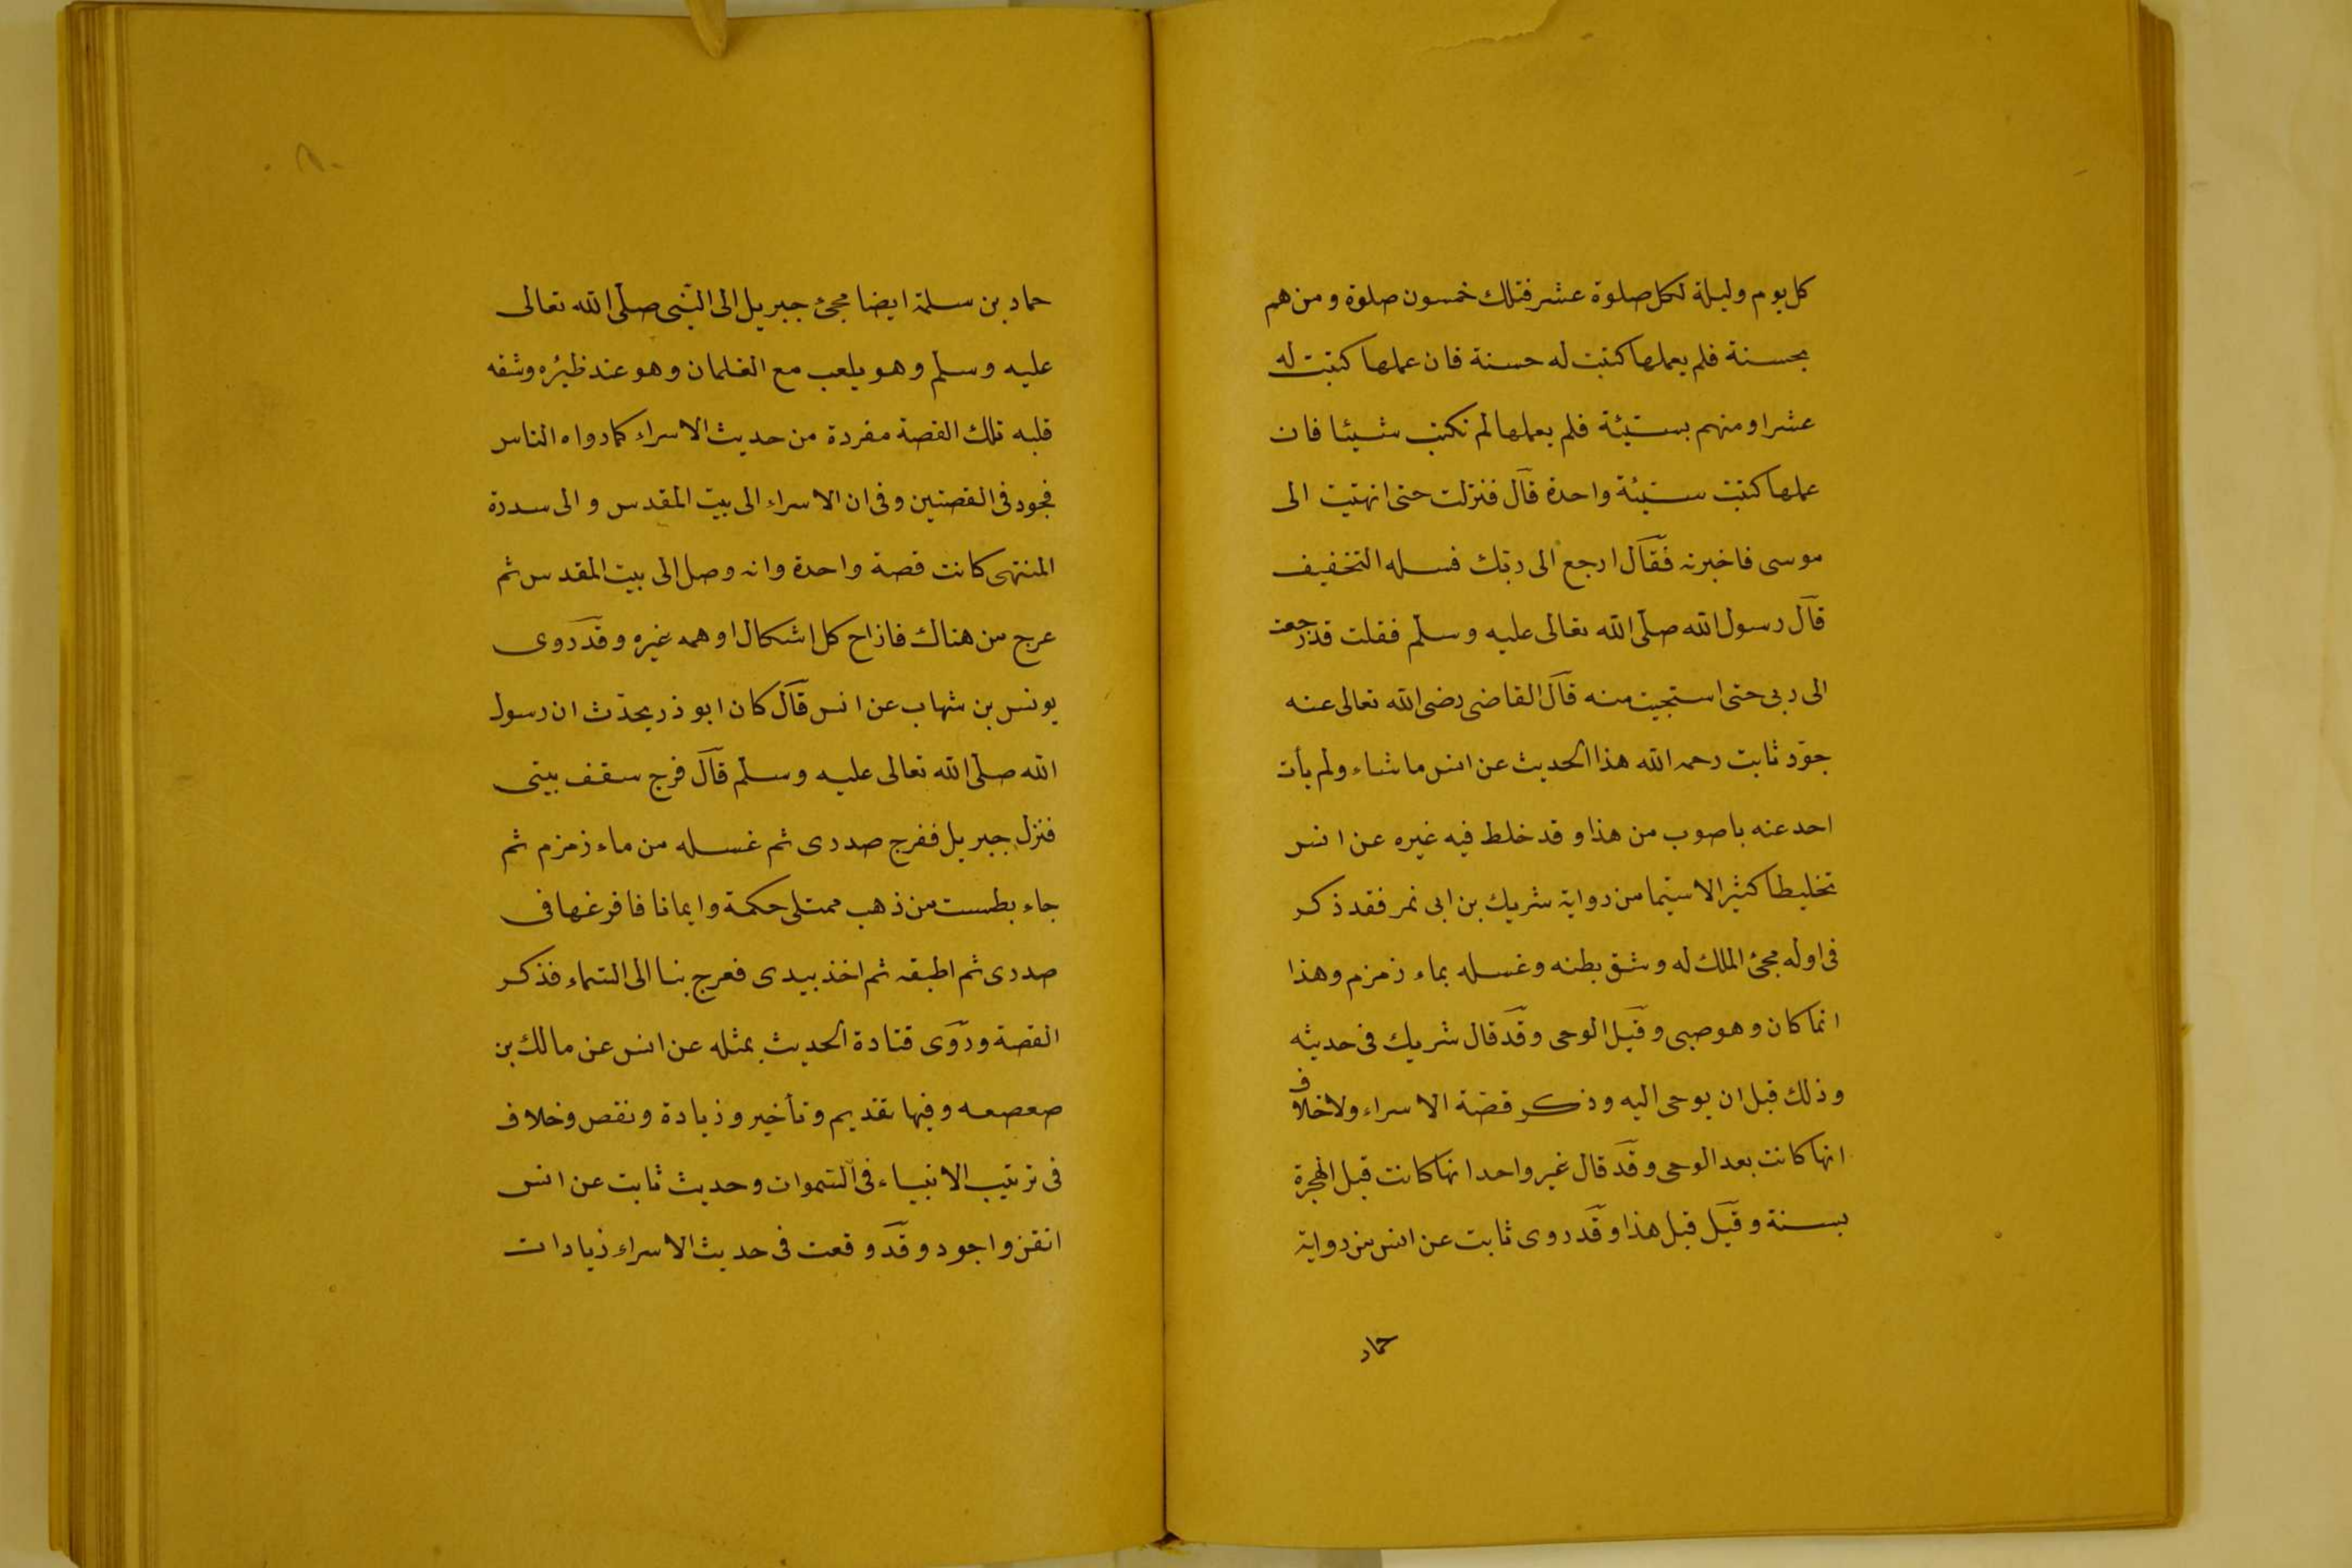 كل يوم وليلة لكل صلوة عشر فتلك خمسون صلوة ومن هم
بحسنة فلم يعملها كتبت له حسنة فان عملها كتبت له
عشرا ومنهم بسيئة فلم يعملها لم تكتب شيئا فان
عملها كتبت سيئة واحدة قال فنزلت حتى انهتيت الى
موسى فاخبرته فقال ارجع الى ربّك فسله التخفيف
قال رسول الله صلّى الله تعالى عليه وسلّم فقلت قد رجعت
الى ربى حتى استحييت منه قال القاضى رضى الله تعالى عنه
جوّد ثابت رحمه الله هذا الحديث عن انس ما شاء ولم يأت
احد عنه باصوب من هذا وقد خلط فيه غيره عن انس
تخليطا كثيرا لاسيّما من رواية شريك بن ابى نمر فقد ذكر
فى اوله مجئ الملك له وشق بطنه وغسله بماء زمزم وهذا
انما كان وهو صبى وقبل الوحى وقد قال شريك فى حديثه
وذلك قبل ان يوحى اليه وذكر قصّة الاسراء ولا خلاف
انها كانت بعد الوحى وقد قال غير واحد انها كانت قبل الهجرة
بسنة وقيل قبل هذا وقد روى ثابت عن انس من رواية
حماد
حماد بن سلمة ايضا مجئ جبريل الى النّبى صلّى الله تعالى
عليه وسلّم وهو يلعب مع الغلمان وهو عند ظئره وشقه
قلبه تلك القصة مفردة من حديث الاسراء كما رواه الناس
فجود فى القصتين وفى ان الاسراء الى بيت المقدس والى سدرة
المنتهى كانت قصة واحدة وانه وصل الى بيت المقدس ثم
عرج من هناك فازاح كل اشكال اوهمه غيره وقد روى
يونس بن شهاب عن انس قال كان ابو ذر يحدّث ان رسول
الله صلّى الله تعالى عليه وسلّم قال فرج سقف بيتى
فنزل جبريل ففرج صدرى ثم غسله من ماء زمزم ثم
جاء بطست من ذهب ممتلى حكمة وايمانا فافرغها فى
صدرى ثم اطبقه ثم اخذ بيدى فعرج بنا الى السّماء فذكر
القصة وروى قتادة الحديث بمثله عن انس عن مالك بن
صعصعه وفيها تقديم وتأخير وزيادة ونقص وخلاف
فى ترتيب الانبياء فى السّموات وحديث ثابت عن انس
اتقن واجود وقد وقعت فى حديث الاسراء زيادات